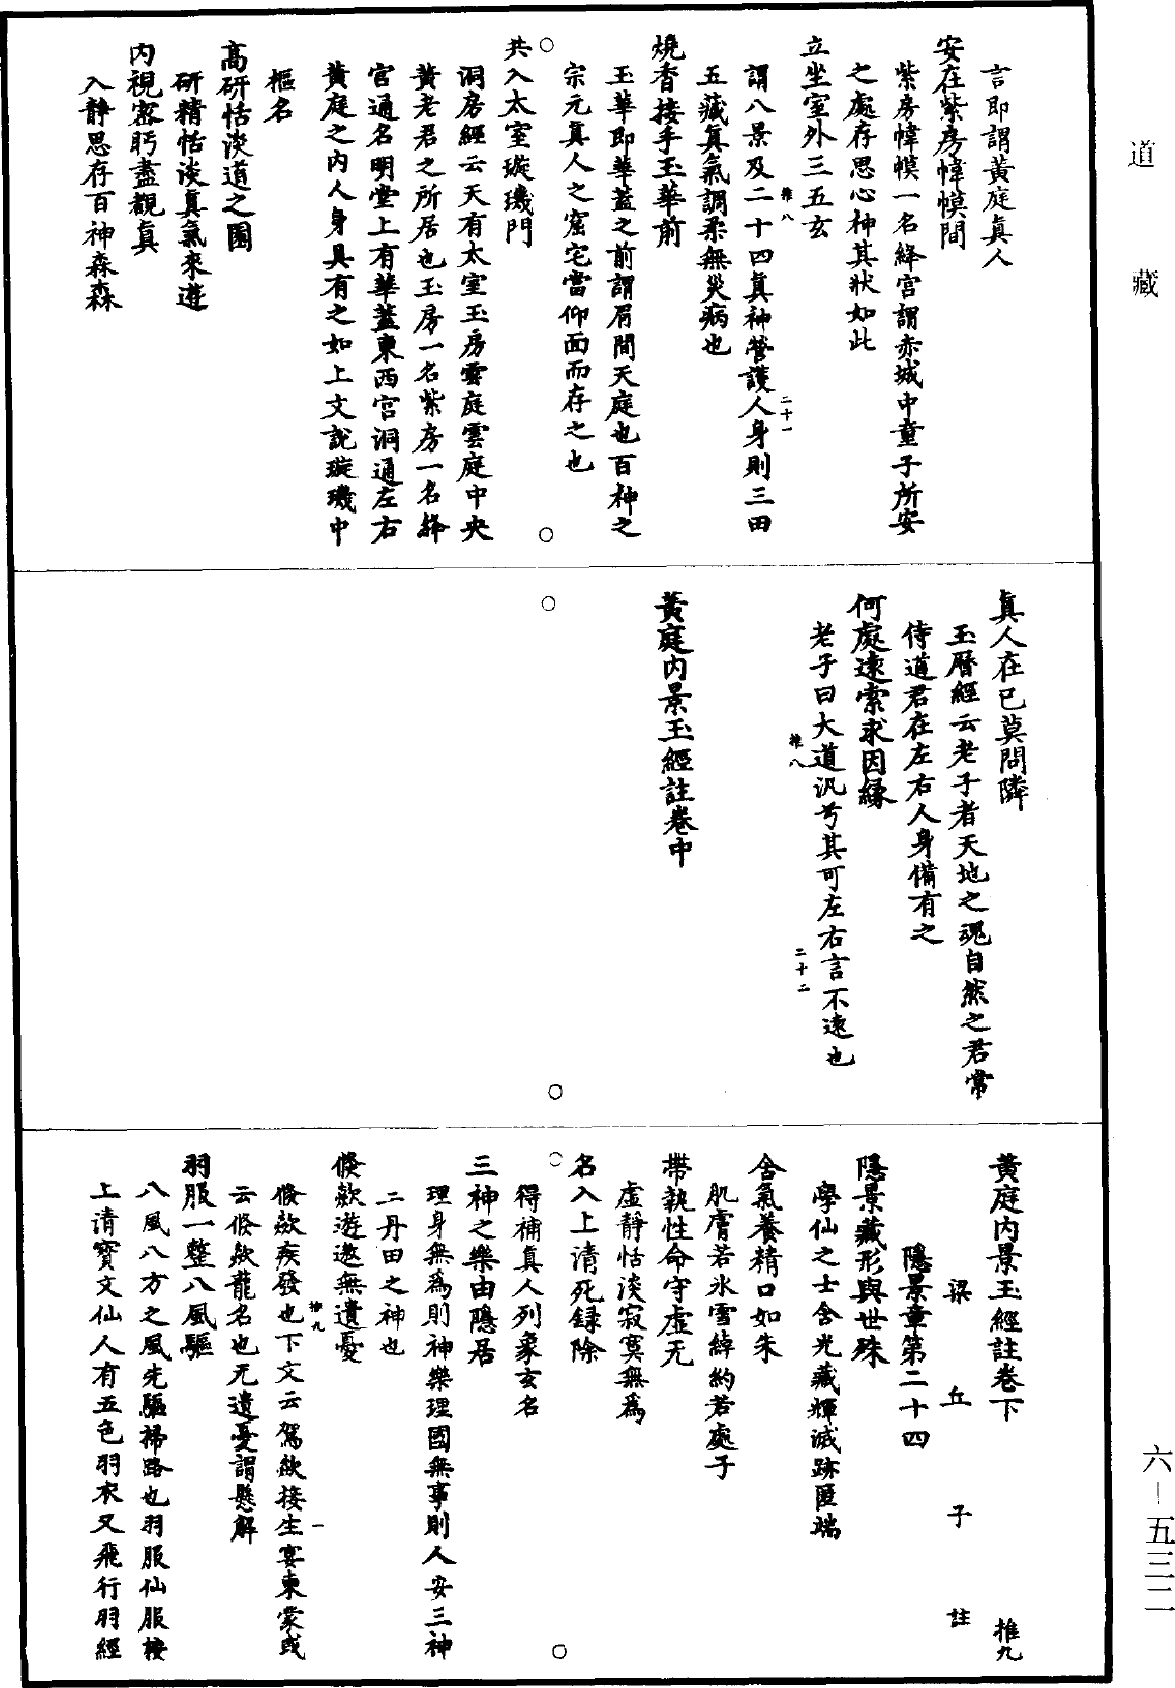 道藏
言即謂黃庭真人
安在紫房幃幙間
紫房幃幙一名絳宮謂赤城中童子所安
之處存思心神其狀如此
立坐室外三五玄
謂八景及二十四真神營護人身則三田
五藏真氣調柔無災病也
燒香接手玉華前
玉華即華蓋之前謂眉間天庭也百神之
宗元真人之窟宅當仰面而存之也
共入太室璇璣門
洞房經云天有太室玉房雲庭雲庭中央
黃老君之所居也玉房一名紫房一名絳
宮通名明堂上有華蓋東西宮洞通左右
黃庭之內人身具有之如上文説璇璣中
樞名
高研恬淡道之園
研精恬淡真氣來遊
內視密眄盡觀真
入靜思存百神森森
推八
二十一
真人在已莫問隣
玉曆經云老子者天地之魂自然之君常
侍道君在左右人身備有之
何處遠索求因緣
老子曰大道汎兮其可左右言不遠也
推八
二十二
黃庭內景玉經註卷中
黃庭內景玉經註卷下
推九
梁丘子註
隱景章第二十四
隱景藏形與世殊
學仙之士含光藏輝滅跡匿端
含氣養精口如朱
肌膚若氷雪綽約若處子
帶執性命守虛无
虛靜恬淡寂寞無為
名入上清死録除
得補真人列象玄名
三神之樂由隱居
理身無為則神樂理國無事則人安三神
二丹田之神也
倏欻遊遨無遺憂
倏欻疾發也下文云駕欻接生宴東蒙或
云倏欻龍名也无遺憂謂懸解
推九
一
羽服一整八風驅
八風八方之風先驅掃路也羽服仙服按
上清寶文仙人有五色羽衣又飛行羽經
六－五三二